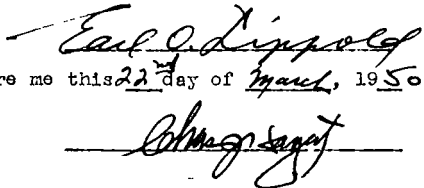 Earl O. Lippold
re me this 22nd day of March, 1950
Chas